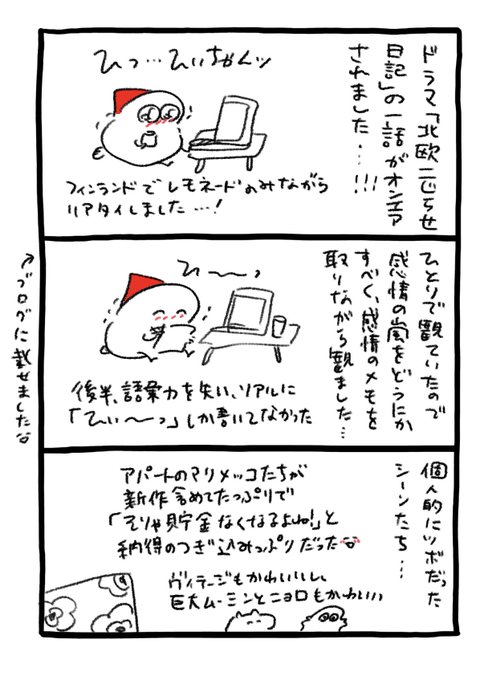 ドラマ「北欧こじらせ
日記」の一話がオンエア
されました…!!!
ひっ…ひいちゃんッ
フィンランドでレモネードのみながら
リアタイしました…!
ひとりで観ていたので
感情の嵐をどうにか
すべく、感情のメモを
取りながら観ました…
ひ〜〜っ
後半、語彙力を失い、リアルに
「ひぃ〜〜っ」しか書いてなかった
↑ブログに載せました
個人的にツボだった
シーンたち…
アパートのマリメッコたちが
新作含めてたっぷりで
「そりゃ貯金なくなるよね!」と
納得のつぎ込みっぷりだった
ヴィンテージもかわいいし、
巨大ムーミンとニョロもかわいい